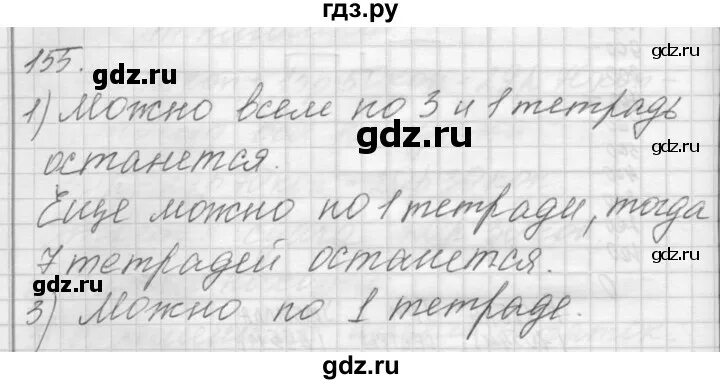 гдз.ру
155.
gdz.ru
gdz.ru
1) Можно всем по 3 и 1 тетрадь
gdz.ru
gdz.ru
останется.
Еще можно по 1 тетради, тогда
7 тетрадей останется.
gdz.ru
gdz.ru
3) Можно по 1 тетраде.
gdz.ru